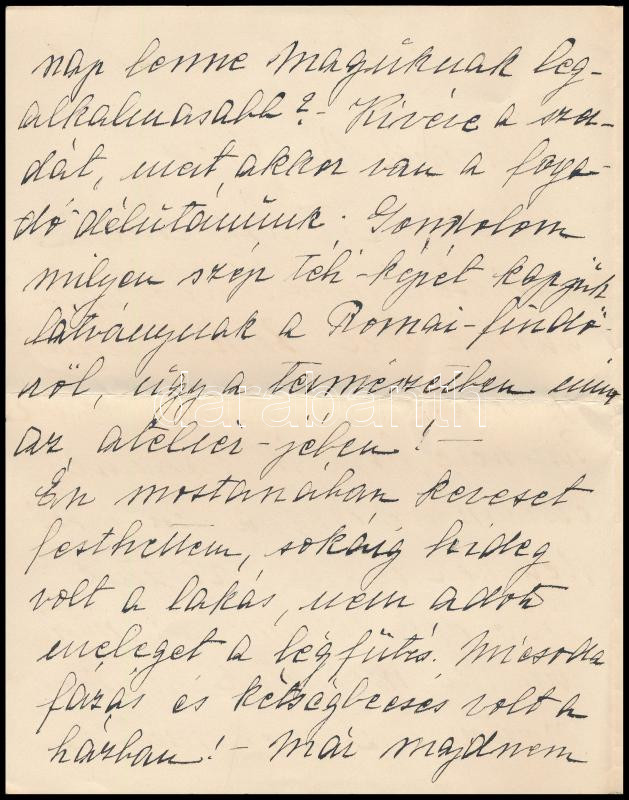 nap lenne Maguknak leg-
alkalmasabb? - Kivéve a sza-
dát, mert akkor van a foga-
dó délutánunk. Gondolom
milyen szép téli-képét kapjuk
látványnak a Római-fürdő-
ről, úgy a természetben mint
az atelier-jében! -
Én mostanában keveset
festhettem, sokáig hideg
volt a lakás, nem adott
meleget a légfűtés. Micsoda
fázás és kétségbeesés volt a
házban! - Már majdnem
darabanth